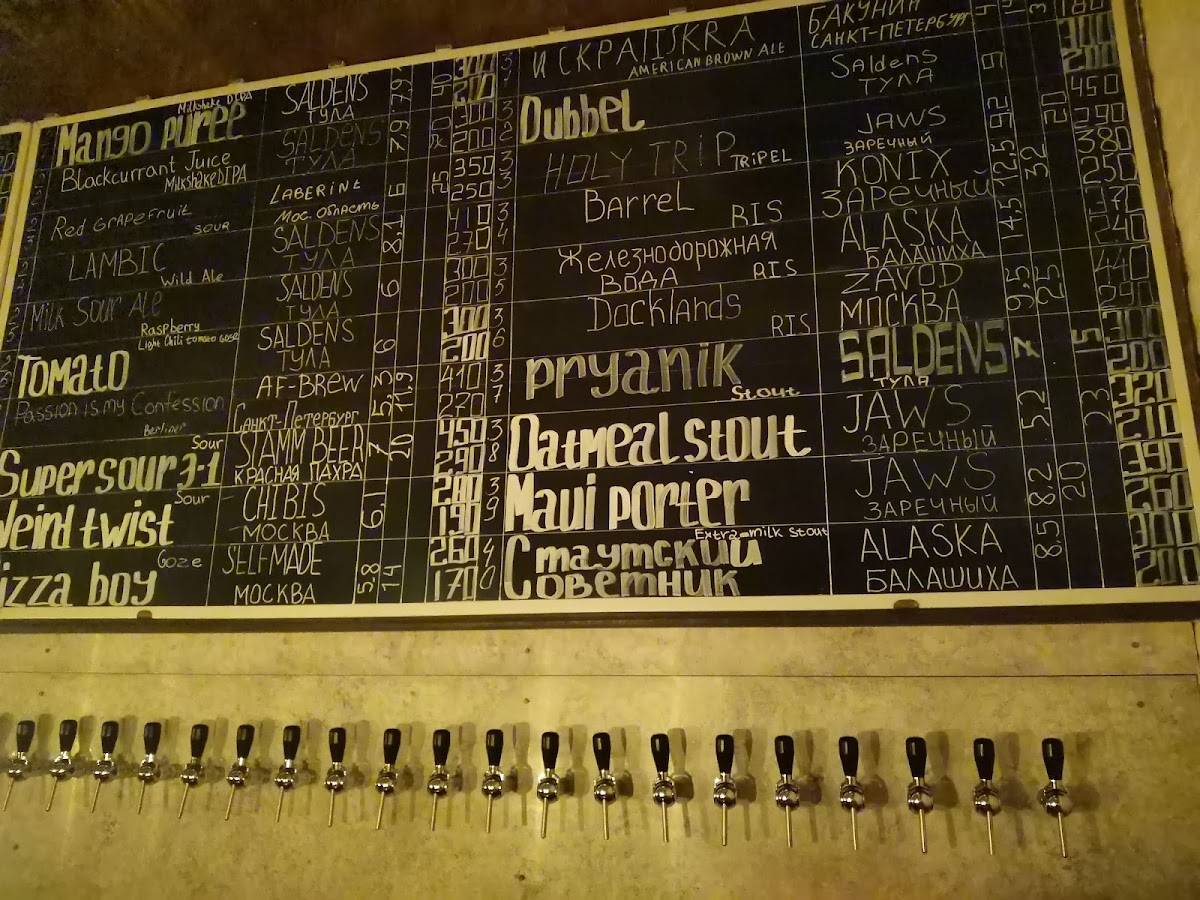 Mango puree Milkshake DIPA SALDENS ТУЛА 7,9 300 200
Blackcurrant Juice MilkshakeDIPA SALDENS ТУЛА 7,9 20 300 200
Red GRAPEfruit SOUR LABERINt Мос. Область 6 25 350 250
LAMBIC Wild Ale SALDENS ТУЛА 8,1 410 270
Milk Sour Ale Raspberry SALDENS ТУЛА 6 300 200
Tomato Light Chili tomato Goze SALDENS ТУЛА 6 300 200
Passion is my Confession Berliner AF-BREW Санкт-Петербург 5,3 11,9 410 270
Super sour 3-1 Sour STAMM BEER КРАСНАЯ ПАХРА 7 20 450 290
Weird twist Sour CHIBIS МОСКВА 6,1 280 190
izza boy Goze SELF-MADE МОСКВА 5,8 14 260 170
31 ИСКРА/ISKRA AMERICAN BROWN ALE БАКУНИН САНКТ-ПЕТЕРБУРГ 180
32 Dubbel Saldens ТУЛА 300 200
33 HOLY TRIP TRIPEL JAWS ЗАРЕЧНЫЙ 9,2 20 450 290
34 Barrel RIS KONIX ЗАРЕЧНЫЙ 12,5 32 380 250
Железнодорожная ВОДА RIS ALASKA БАЛАШИХА 14,5 240
35 Docklands RIS ZAVOD МОСКВА 9,5 25 440 290
36 pryanik Stout SALDENS ТУЛА 7 15 300 200
37 Oatmeal stout JAWS ЗАРЕЧНЫЙ 5,2 23 320 210
38 Maui porter JAWS ЗАРЕЧНЫЙ 8,2 20 390 260
40 Стаутский Советник Extra-milk Stout ALASKA БАЛАШИХА 8,5 300 200